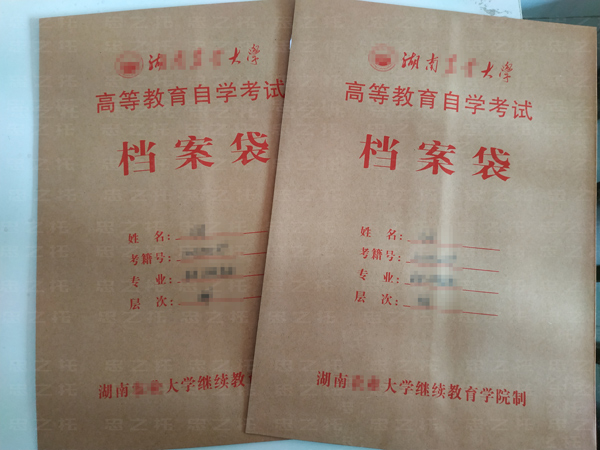 湖 大学
高等教育自学考试
档案袋
姓 名：
考籍号：
专 业：
层 次：
湖南 大学继续教
湖南 大学
高等教育自学考试
档案袋
姓 名：
考籍号：
专 业：
层 次：
湖南 大学继续教育学院制